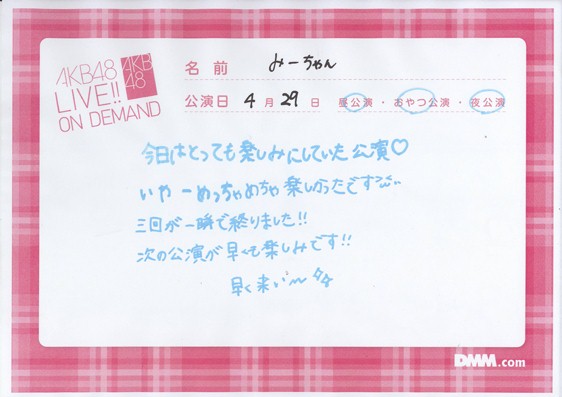 AKB48
LIVE!!
ON DEMAND
AKB
48
名前 みーちゃん
公演日 4月29日 昼公演・おやつ公演・夜公演
今日はとっても楽しみにしていた公演♡
いやーめっちゃめちゃ楽しかったです
三回が一瞬で終りました!!
次の公演が早くて楽しみです!!
早く来い〜
DMM.com